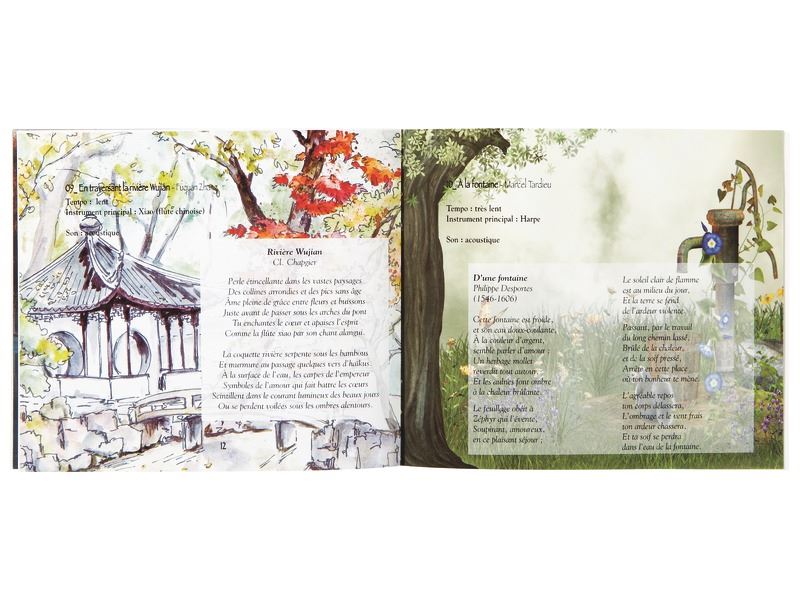 09_ En traversant la rivière Wujian - Fuquan Zhang
Tempo : lent
Instrument principal : Xiao (flûte chinoise)
Son : acoustique
Rivière Wujian
Cl. Chapgier
Perle étincellante dans les vastes paysages
Des collines arrondies et des pics sans âge
Âme pleine de grâce entre fleurs et buissons
Juste avant de passer sous les arches du pont
Tu enchantes le cœur et apaises l'esprit
Comme la flûte xiao par son chant alangui.
La coquette rivière serpente sous les bambous
Et murmure au passage quelques vers d'haïkus.
À la surface de l'eau, les carpes de l'empereur
Symboles de l'amour qui fait battre les cœurs
Scintillent dans le courant lumineux des beaux jours
Ou se perdent voilées sous les ombres alentours.
12
10_ À la fontaine - Marcel Tardieu
Tempo : très lent
Instrument principal : Harpe
Son : acoustique
D'une fontaine
Philippe Desportes
(1546-1606)
Cette fontaine est froide,
et son eau doux-coulante,
À la couleur d'argent,
semble parler d'amour ;
Un herbage mollet
reverdit tout autour,
Et les aulnes font ombre
à la chaleur brûlante.
Le feuillage obéit à
Zéphyr qui l'évente,
Soupirant, amoureux,
en ce plaisant séjour ;
Le soleil clair de flamme
est au milieu du jour,
Et la terre se fend
de l'ardeur violente.
Passant, par le travail
du long chemin lassé,
Brûlé de la chaleur,
et de la soif pressé,
Arrête en cette place
où ton bonheur te mène.
L'agréable repos
ton corps délassera,
L'ombrage et le vent frais
ton ardeur chassera,
Et ta soif se perdra
dans l'eau de la fontaine.